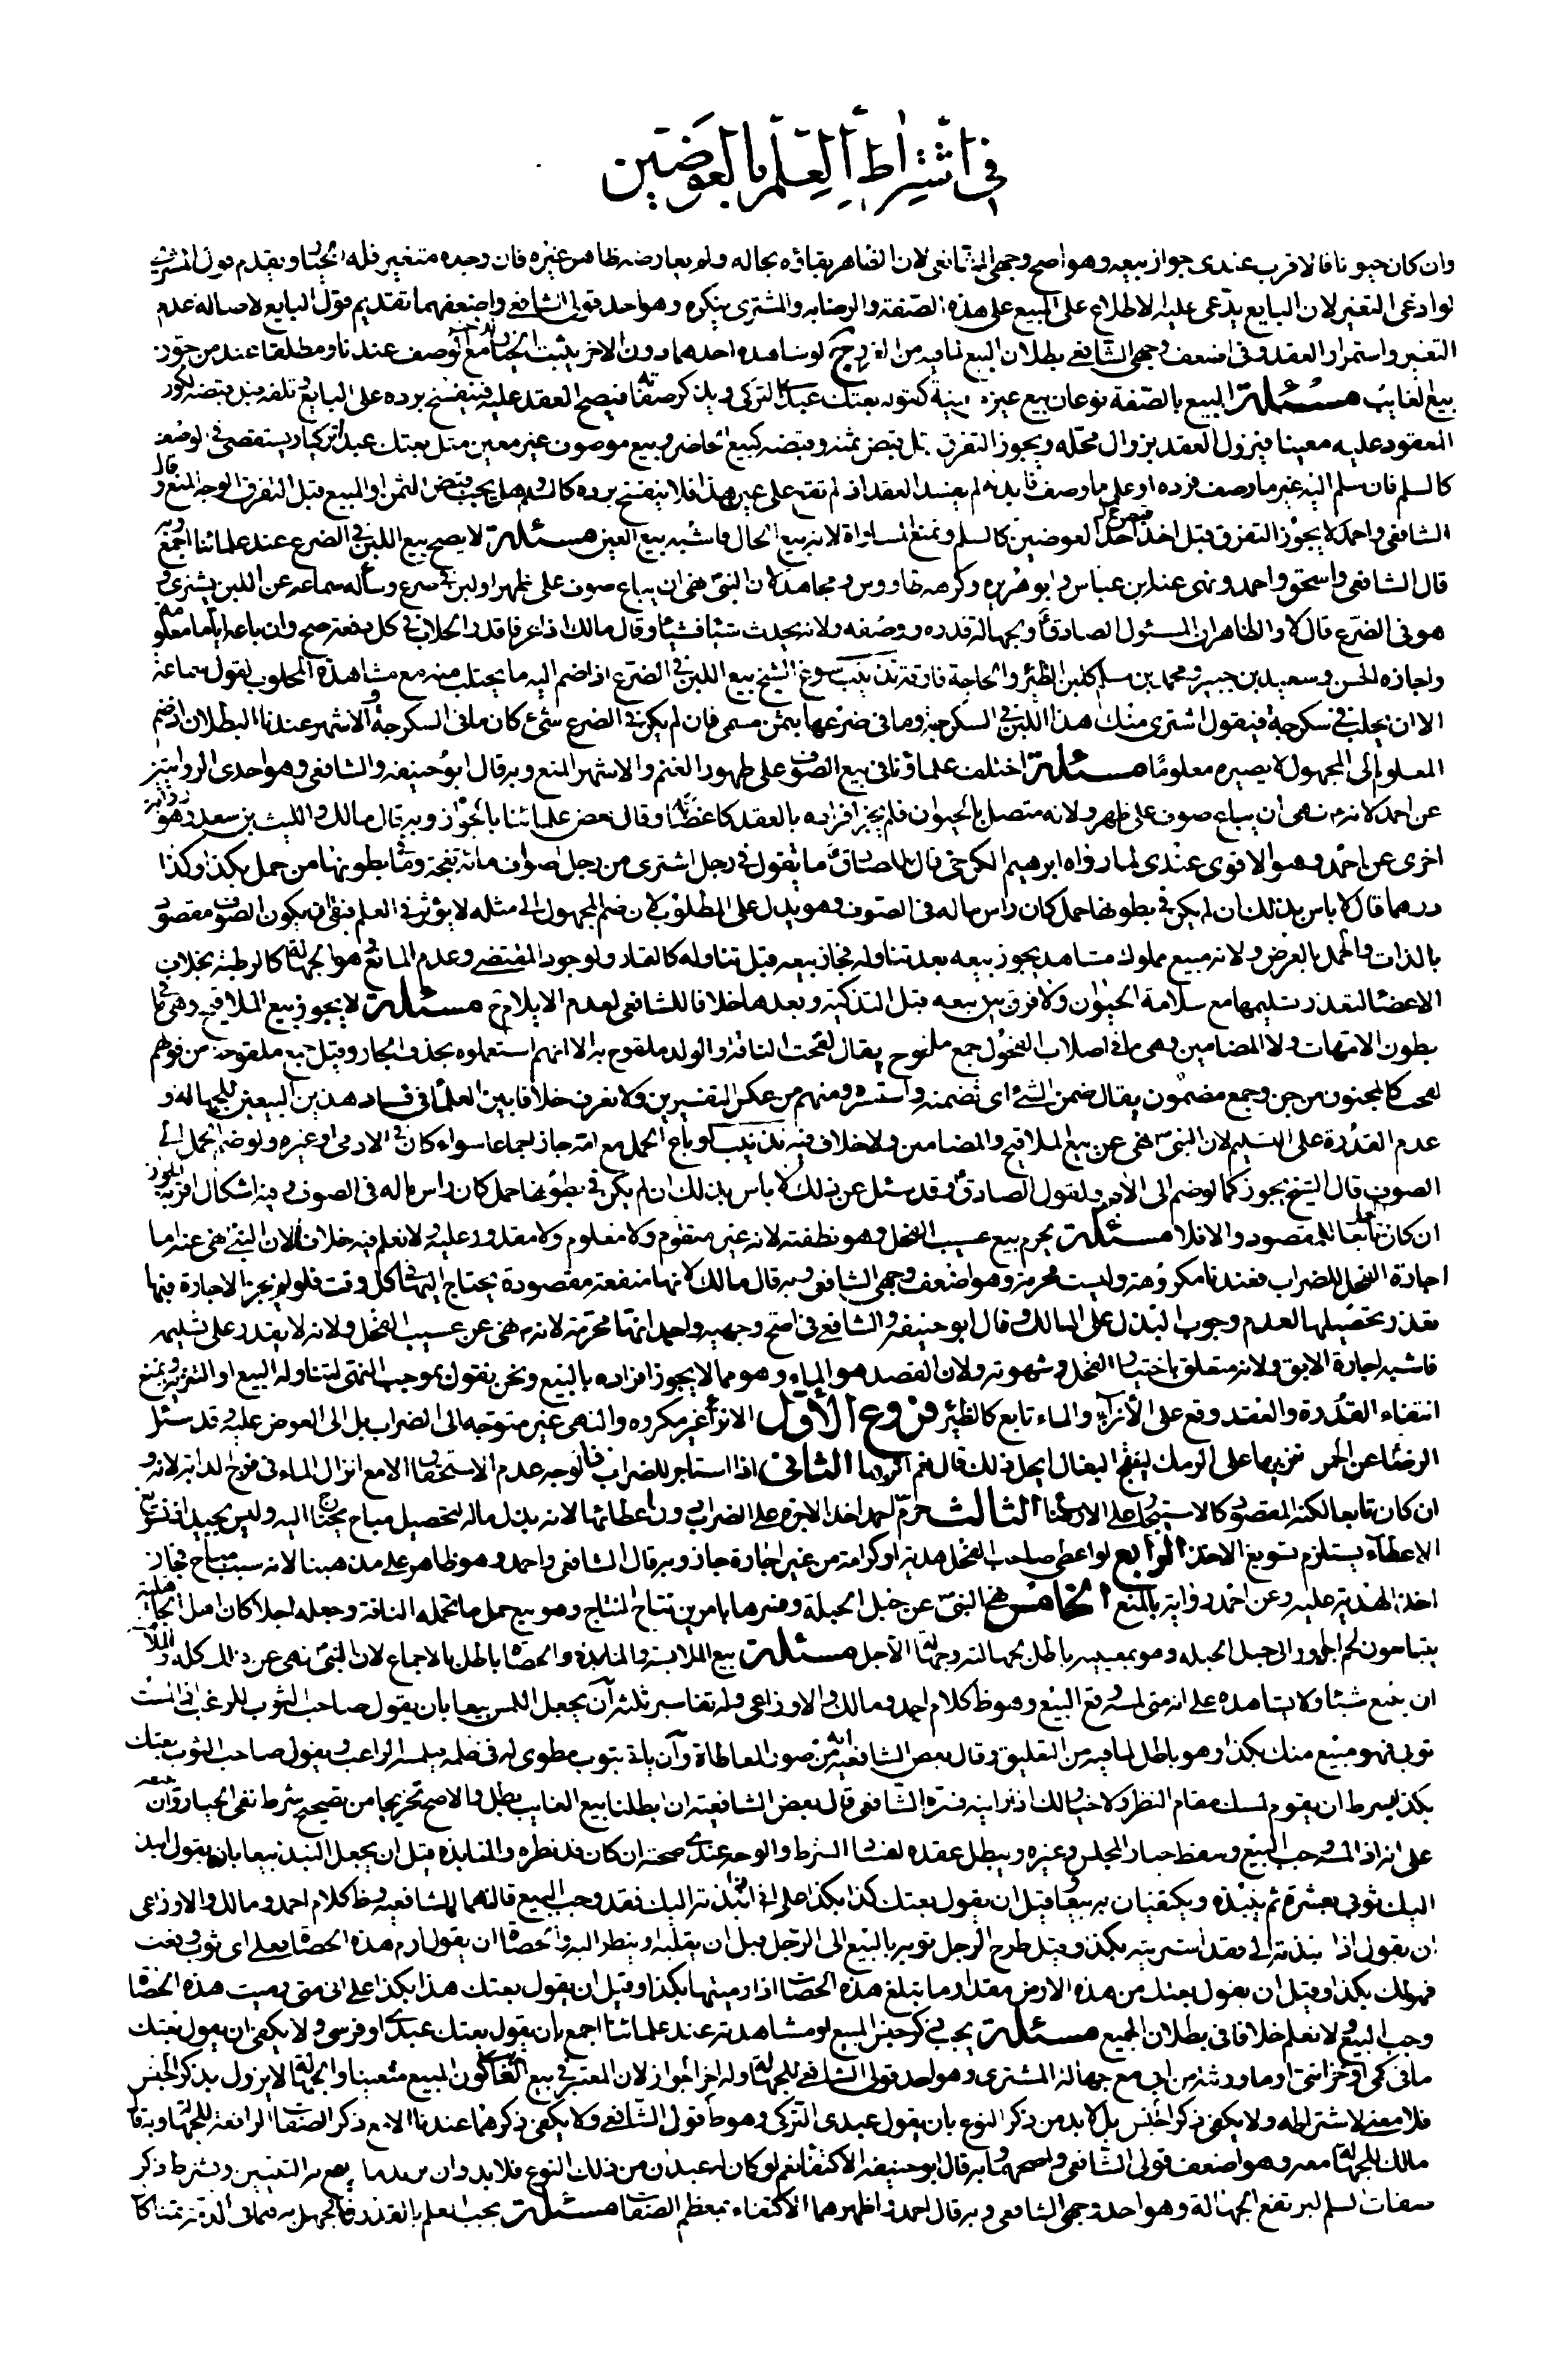 في اشتراط العلم بالعوضين
وان كان حيوانا فالاقرب عندى جواز بيعه وهو اصح وجهى الشافعى لان الظاهر بقاؤه بحاله ولم يعارضه ظاهر غيره فان وجده متغير فله الخيار ويقدم قول المشترى
لو ادعى التغير لان البايع يدّعى عليه الاطلاع على المبيع على هذه الصّفة والرضا به والمشترى ينكره وهو احد قولى الشافعى واضعفهما تقديم قول البايع لاصالة عدم
التغير واستمرار العقد وفى اضعف وجهى الشافعى بطلان البيع لما فيه من الغرر لو شاهد احدهما دون الاخر يثبت الخيار مع الوصف عندنا ومطلقا عند من جوز
بيع الغايب مسئلة البيع بالصّفة نوعان بيع عين معينة كقوله بعتك عبدى التركى ويذكر صفاته فيصح العقد عليه فينفسخ برده على البايع وتلفه قبل قبضه لكون
المعقود عليه معينا فيزول العقد بزوال محله ويجوز التفرق قبل قبض ثمنه وقبضه كبيع الحاضر وبيع موصوف غير معين مثل بعتك عبدا تركيا ويستقصى في الوصف
كالسلم فان سلم اليه غير ما وصف فرده او على ما وصف فابدله لم يفسد العقد اذ لم تقع على عين هذا فلا ينفسخ برده كالسلم وهل يجب قبض الثمن او المبيع قبل التفرق الوجه المنع وقال
الشافعى واحمد لا يجوز التفرق قبل اخذ احد العوضين كالسلم ونمنع المساواة لانه بيع الحال فاشبه بيع العين مسئلة لا يصح بيع اللبن في الضرع عند علمائنا اجمع وبه
قال الشافعى واسحق واحمد ونهى عنه ابن عباس وابو هريره وكرهه طاووس ومجاهد لان النبى نهى ان يباع صوف على ظهر او لبن في ضرع وسأله سماعه عن اللبن يشترى و
هو فى الضرع قال لا والظاهر ان المسئول الصادق ولجهالة قدره ووصفه ولانه يحدث شيئا فشيئا وقال مالك اذا عرفا قدر الحلاب في كل دفعة صح وان باعه اياما معلومة
واجازه الحسن وسعيد بن جبير ومحمد بن مسلم كلبن الظئر والحاجة فارقة تذنيب سوغ الشيخ بيع اللبن في الضرع اذا ضم اليه ما يحتلب منه مع مشاهدة المحلوب لقول سماعة
الا ان يحلب في سكرجة فيقول اشترى منك هذا اللبن في السكرجة وما فى ضرعها بثمن مسمى فان لم يكن في الضرع شئ كان ما فى السكرجة والاشهر عندنا البطلان اذ ضم
المعلوم الى المجهول لا يصيره معلوما مسئلة اختلف علماؤنا فى بيع الصوف على ظهور الغنم والاشهر المنع وبه قال ابو حنيفه والشافعى وهو احدى الروايتين
عن احمد لانه نهى ان يباع صوف على ظهر ولانه متصل بالحيوان فلم يجز افراده بالعقد كاعضائه وقال بعض علمائنا بالجواز وبه قال مالك والليث بن سعد وهو رواية
اخرى عن احمد وهو الاقوى عندى لما رواه ابرهيم الكرخى قال للصادق ما تقول في رجل اشترى من رجل اصواف مائة نعجة وما في بطونها من حمل بكذا وكذا
درهما قال لا باس بذلك ان لم يكن في بطونها حمل كان راس ماله فى الصوف وهو يدل على المطلوب لان ضم المجهول الى مثله لا يؤثر في العلم فبقى ان يكون الصوف مقصودا
بالذات والحمل بالعرض ولانه مبيع مملوك مشاهد يجوز بيعه بعد تناوله فجاز بيعه قبل تناوله كالثمار ولوجود المقتضى وعدم المانع وهو الجهالة كالرطبة بخلاف
الاعضاء لتعذر تسليمها مع سلامة الحيوان ولا فرق بين بيعه قبل التذكية وبعدها خلافا للشافعى لعدم الايلام ح مسئلة لا يجوز بيع الملاقيح وهى ما في
بطون الامهات ولا المضامين وهى ما في اصلاب الفحول جمع ملقوح يقال لقحت الناقة والولد ملقوح به الا انهم استعملوه بحذف الجار وقيل جمع ملقوحة من قولهم
لقحت كالمجنون من جن وجمع مضمون يقال ضمن الشئ اى تضمنه واستسره ومنهم من عكس التفسيرين ولا نعرف خلافا بين العلماء فى فساد هذين البيعين للجهالة و
عدم القدرة على التسليم لان النبى نهى عن بيع الملاقيح والمضامين ولا خلاف فيه تذنيب لو باع الحمل مع امه جاز اجماعا سواء كان في الادمى او غيره ولو ضم الحمل الى
الصوف قال الشيخ يجوز كما لو ضم الى الام ولقول الصادق وقد سئل عن ذلك لا باس بذلك ان لم يكن في بطونها حمل كان راس ماله فى الصوف وفيه اشكال اقربه الجواز
ان كان الحمل تابعا للمقصود والا فلا مسئلة يحرم بيع عسيب الفحل وهو نطفته لانه غير متقوم ولا معلوم ولا مقدور عليه ولا نعلم فيه خلافا لان النبى نهى عنه اما
اجارة الفحل للضراب فعندنا مكروهة وليست محرمة وهو اضعف وجهى الشافعى وبه قال مالك لانها منفعة مقصودة يحتاج اليها في كل وقت فلو لم يجز الاجارة فيها
تعذر تحصيلها لعدم وجوب البذل على المالك وقال ابو حنيفة والشافعى فى اصح وجهيه واحمد انها محرمة لانه نهى عن عسيب الفحل ولانه لا يقدر على تسليمه
فاشبه اجارة الابق ولانه متعلق باختيار الفحل وشهوته ولان القصد هو الماء وهو مما لا يجوز افراده بالبيع ونحن نقول بموجب النهى لتناوله البيع او التنزيه ونمنع
انتفاء القدرة والعقد وقع على الانزاء والماء تابع كالظئر فروع الاول الانزاء غير مكروه والنهى غير متوجه الى الضراب بل الى العوض عليه وقد سئل
الرضا عن الحمر تنزيها على الرمك لينتج البغال ايحل ذلك قال نعم انزها الثانى اذا استاجر للضراب فالوجه عدم الاستحقاق الا مع انزال الماء فى فرج الدابة لانه و
ان كان تابعا لكنه المقصود كالاستيجار على الارضاع الثالث حرم احمد اخذ الاجرة على الضراب دون اعطائها لانه بذل ماله لتحصيل مباح يحتاج اليه وليس بجيد اذ تسويغ
الاعطاء يستلزم تسويغ الاخذ الرابع لو اعطى صاحب الفحل هدية او كرامة من غير اجارة جاز وبه قال الشافعى واحمد وهو ظاهر على مذهبنا لانه سبب مباح فجاز
اخذ الهدية عليه وعن احمد رواية بالمنع الخامس نهى النبى عن حبل الحبلة وفسر بامرين نتاج النتاج وهو بيع حمل ما تحمله الناقة وجعله اجلا كان اهل الجاهلية
يتبايعون لحم الجزور الى حبل الحبلة وهو بمعنييه باطل لجهالته وجهالة الاجل مسئلة بيع الملامسة والمنابذة والحصاة باطل بالاجماع لان النبى نهى عن ذلك كله والملامسة
ان يبيع شيئا ولا يشاهده على انه متى لمسه وقع البيع وهو ظ كلام احمد ومالك والاوزاعى وله تفاسير ثلثة آن يجعل اللمس بيعا بان يقول صاحب الثوب للراغب اذا لمست
ثوبى فهو مبيع منك بكذا وهو باطل لما فيه من التعليق وقال بعض الشافعية انه من صور المعاطاة وآن ياتى بثوب مطوى او فى ظلمة فيلمسه الراغب ويقول صاحب الثوب بعتك
بكذا بشرط ان يقوم لمسك مقام النظر ولا خيار لك اذا رايته فسره الشافعى قال بعض الشافعية ان ابطلنا بيع الغايب بطل والا صح تخريجا من تصحيح شرط نفى الخيار وآن يبيعه
على انه اذا لمسه وجب البيع وسقط خيار المجلس وغيره ويبطل عقده لفساد الشرط والوجه عندى صحته ان كان قد نظره والمنابذة قيل ان يجعل النبذ بيعا بان يقول انبذ
اليك ثوبى بعشرة ثم ينبذه ويكتفيان به بيعا وقيل ان يقول بعتك كذا بكذا على انى اذا نبذته اليك فقد وجب البيع قالهما الشافعية وظ كلام احمد ومالك والاوزاعى
ان يقول اذا نبذته الى فقد اشتريته بكذا وقيل طرح الرجل ثوبه بالبيع الى الرجل قبل ان يقلبه او ينظر اليه والحصاة ان يقول ارم هذه الحصاة فعلى اى ثوب وقعت
فهو لك بكذا وقيل ان يقول بعتك من هذه الارض مقدار ما تبلغ هذه الحصاة اذا رميتها بكذا وقيل ان يقول بعتك هذا بكذا على انى متى رميت هذه الحصاة
وجب البيع ولا نعلم خلافا فى بطلان الجميع مسئلة يجب ذكر جنس المبيع او مشاهدته عند علمائنا اجمع بان يقول بعتك عبدى او فرسى ولا يكفى ان يقول بعتك
ما فى كمى او خزانتى او ما ورثته من ابى مع جهالة المشترى وهو احد قولى الشافعى للجهالة وله اخر الجواز لان المعتبر في بيع الغايب كون المبيع متعينا والجهالة لا يزول بذكر الجنس
فلا معنى لاشتراطه ولا يكفى ذكر الجنس بل لا بد من ذكر النوع بان يقول عبدى التركى وهو ظ قول الشافعى ولا يكفى ذكرهما عندنا الا مع ذكر الصفات الرافعة للجهالة وبه قال
مالك للجهالة معه وهو اضعف قولى الشافعى واصحهما وبه قال ابو حنيفة الاكتفاء نعم لو كان له عبدان من ذلك النوع فلا بد وان يزيد ما يقع به التعيين ويشرط ذكر
صفات السلم ليرتفع الجهالة وهو احد وجهى الشافعى وبه قال احمد واظهرهما الاكتفاء بمعظم الصفات مسئلة يجب العلم بالقدر فالجهل به فيما فى الذمة ثمنا كان